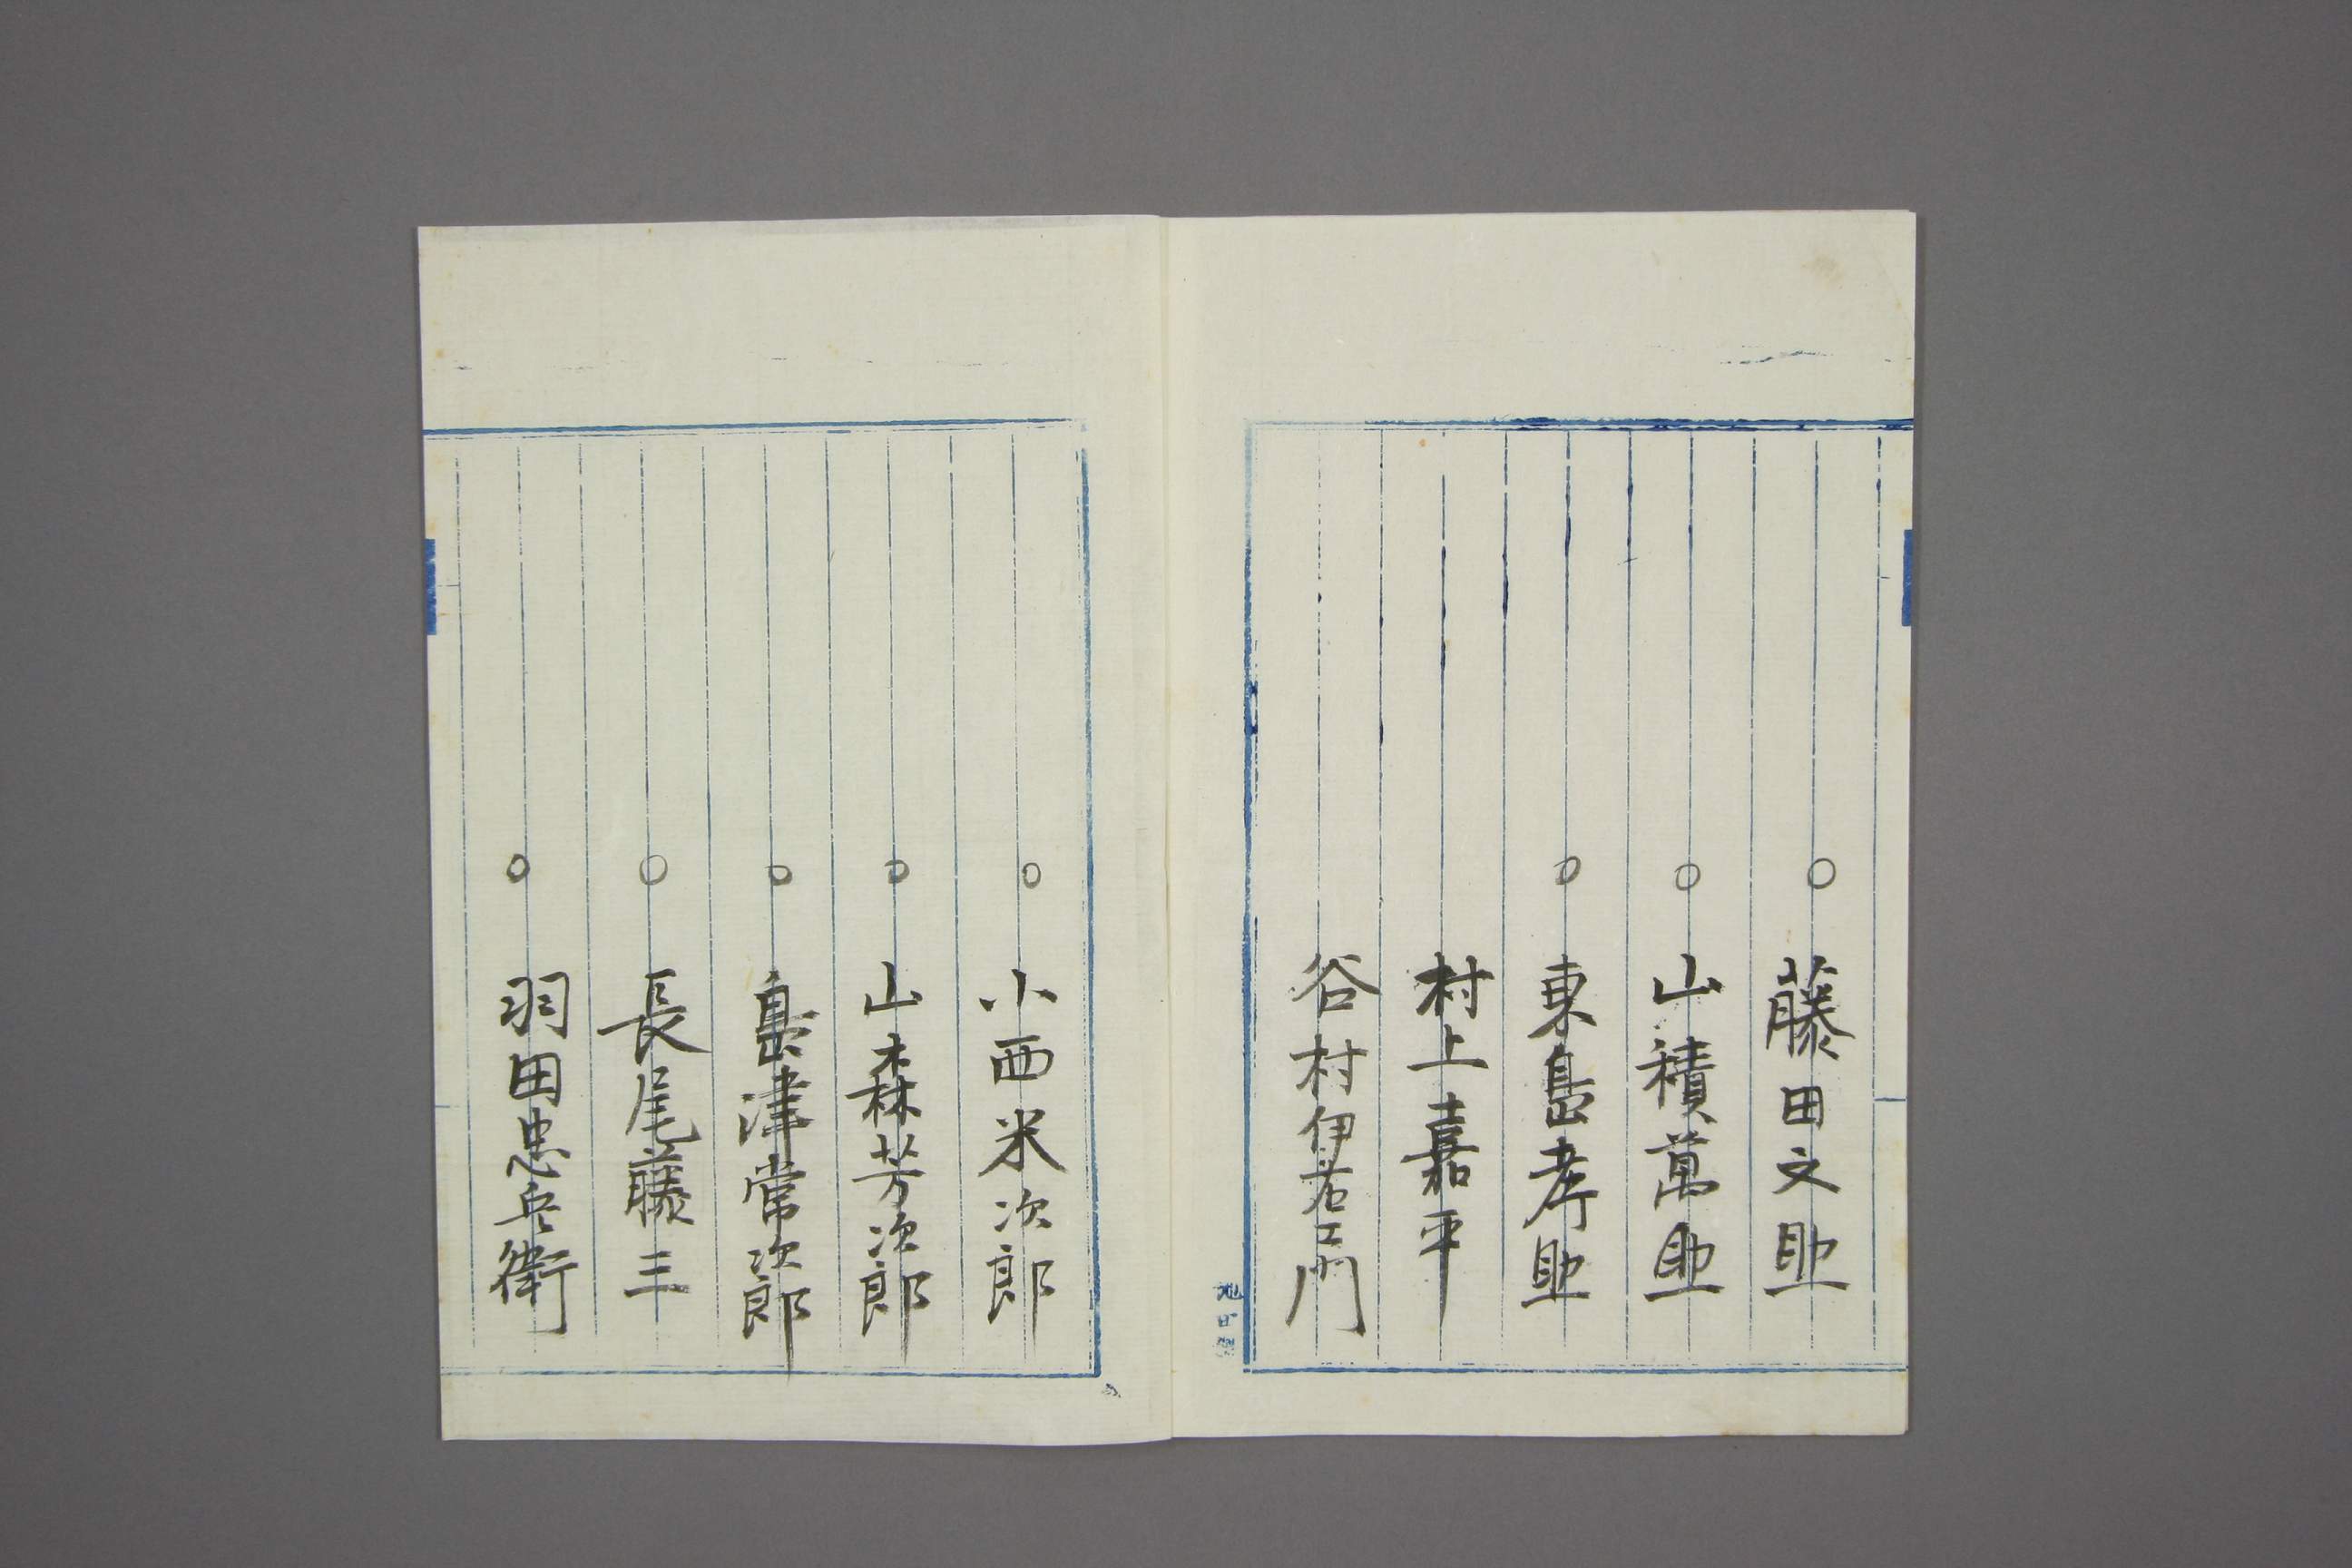 ○藤田文助
○山積萬助
○東島孝助
村上嘉平
谷村伊右エ門
○小西米次郎
○山森芳次郎
○島津常次郎
○長尾藤三
○羽田忠兵衛